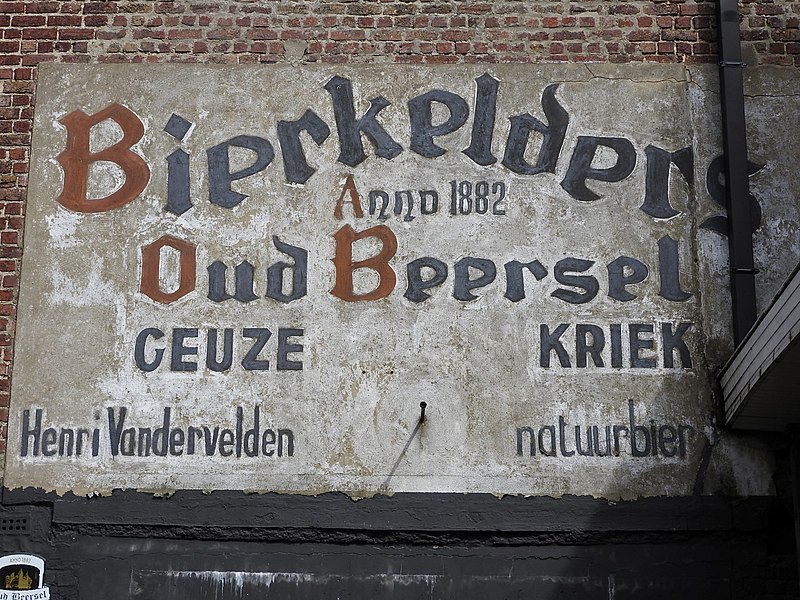 Bierkelders
Anno 1882
Oud Beersel
GEUZE KRIEK
Henri Vandervelden natuurbier
ANNO 1882
ud Beersel